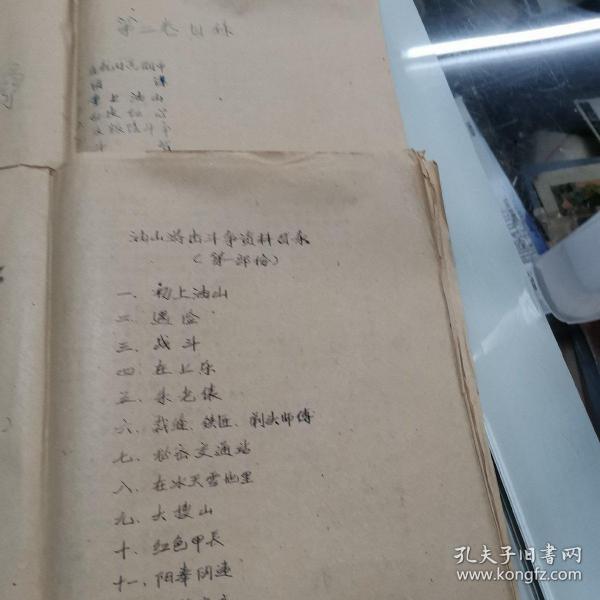 第二卷目录
上油山
油山游击斗争资料目录
（第一部份）
一、初上油山
二、遇险
三、战斗
四、在上乐
五、朱老俵
六、裁缝、铁匠、剃头师傅
七、秘密交通站
八、在冰天雪地里
九、大搜山
十、红色甲长
十一、阳奉阴违
孔夫子旧书网
www.kongfz.com